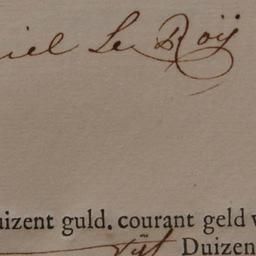 iel Le Roÿ
uizent guld. courant geld v
Duizen